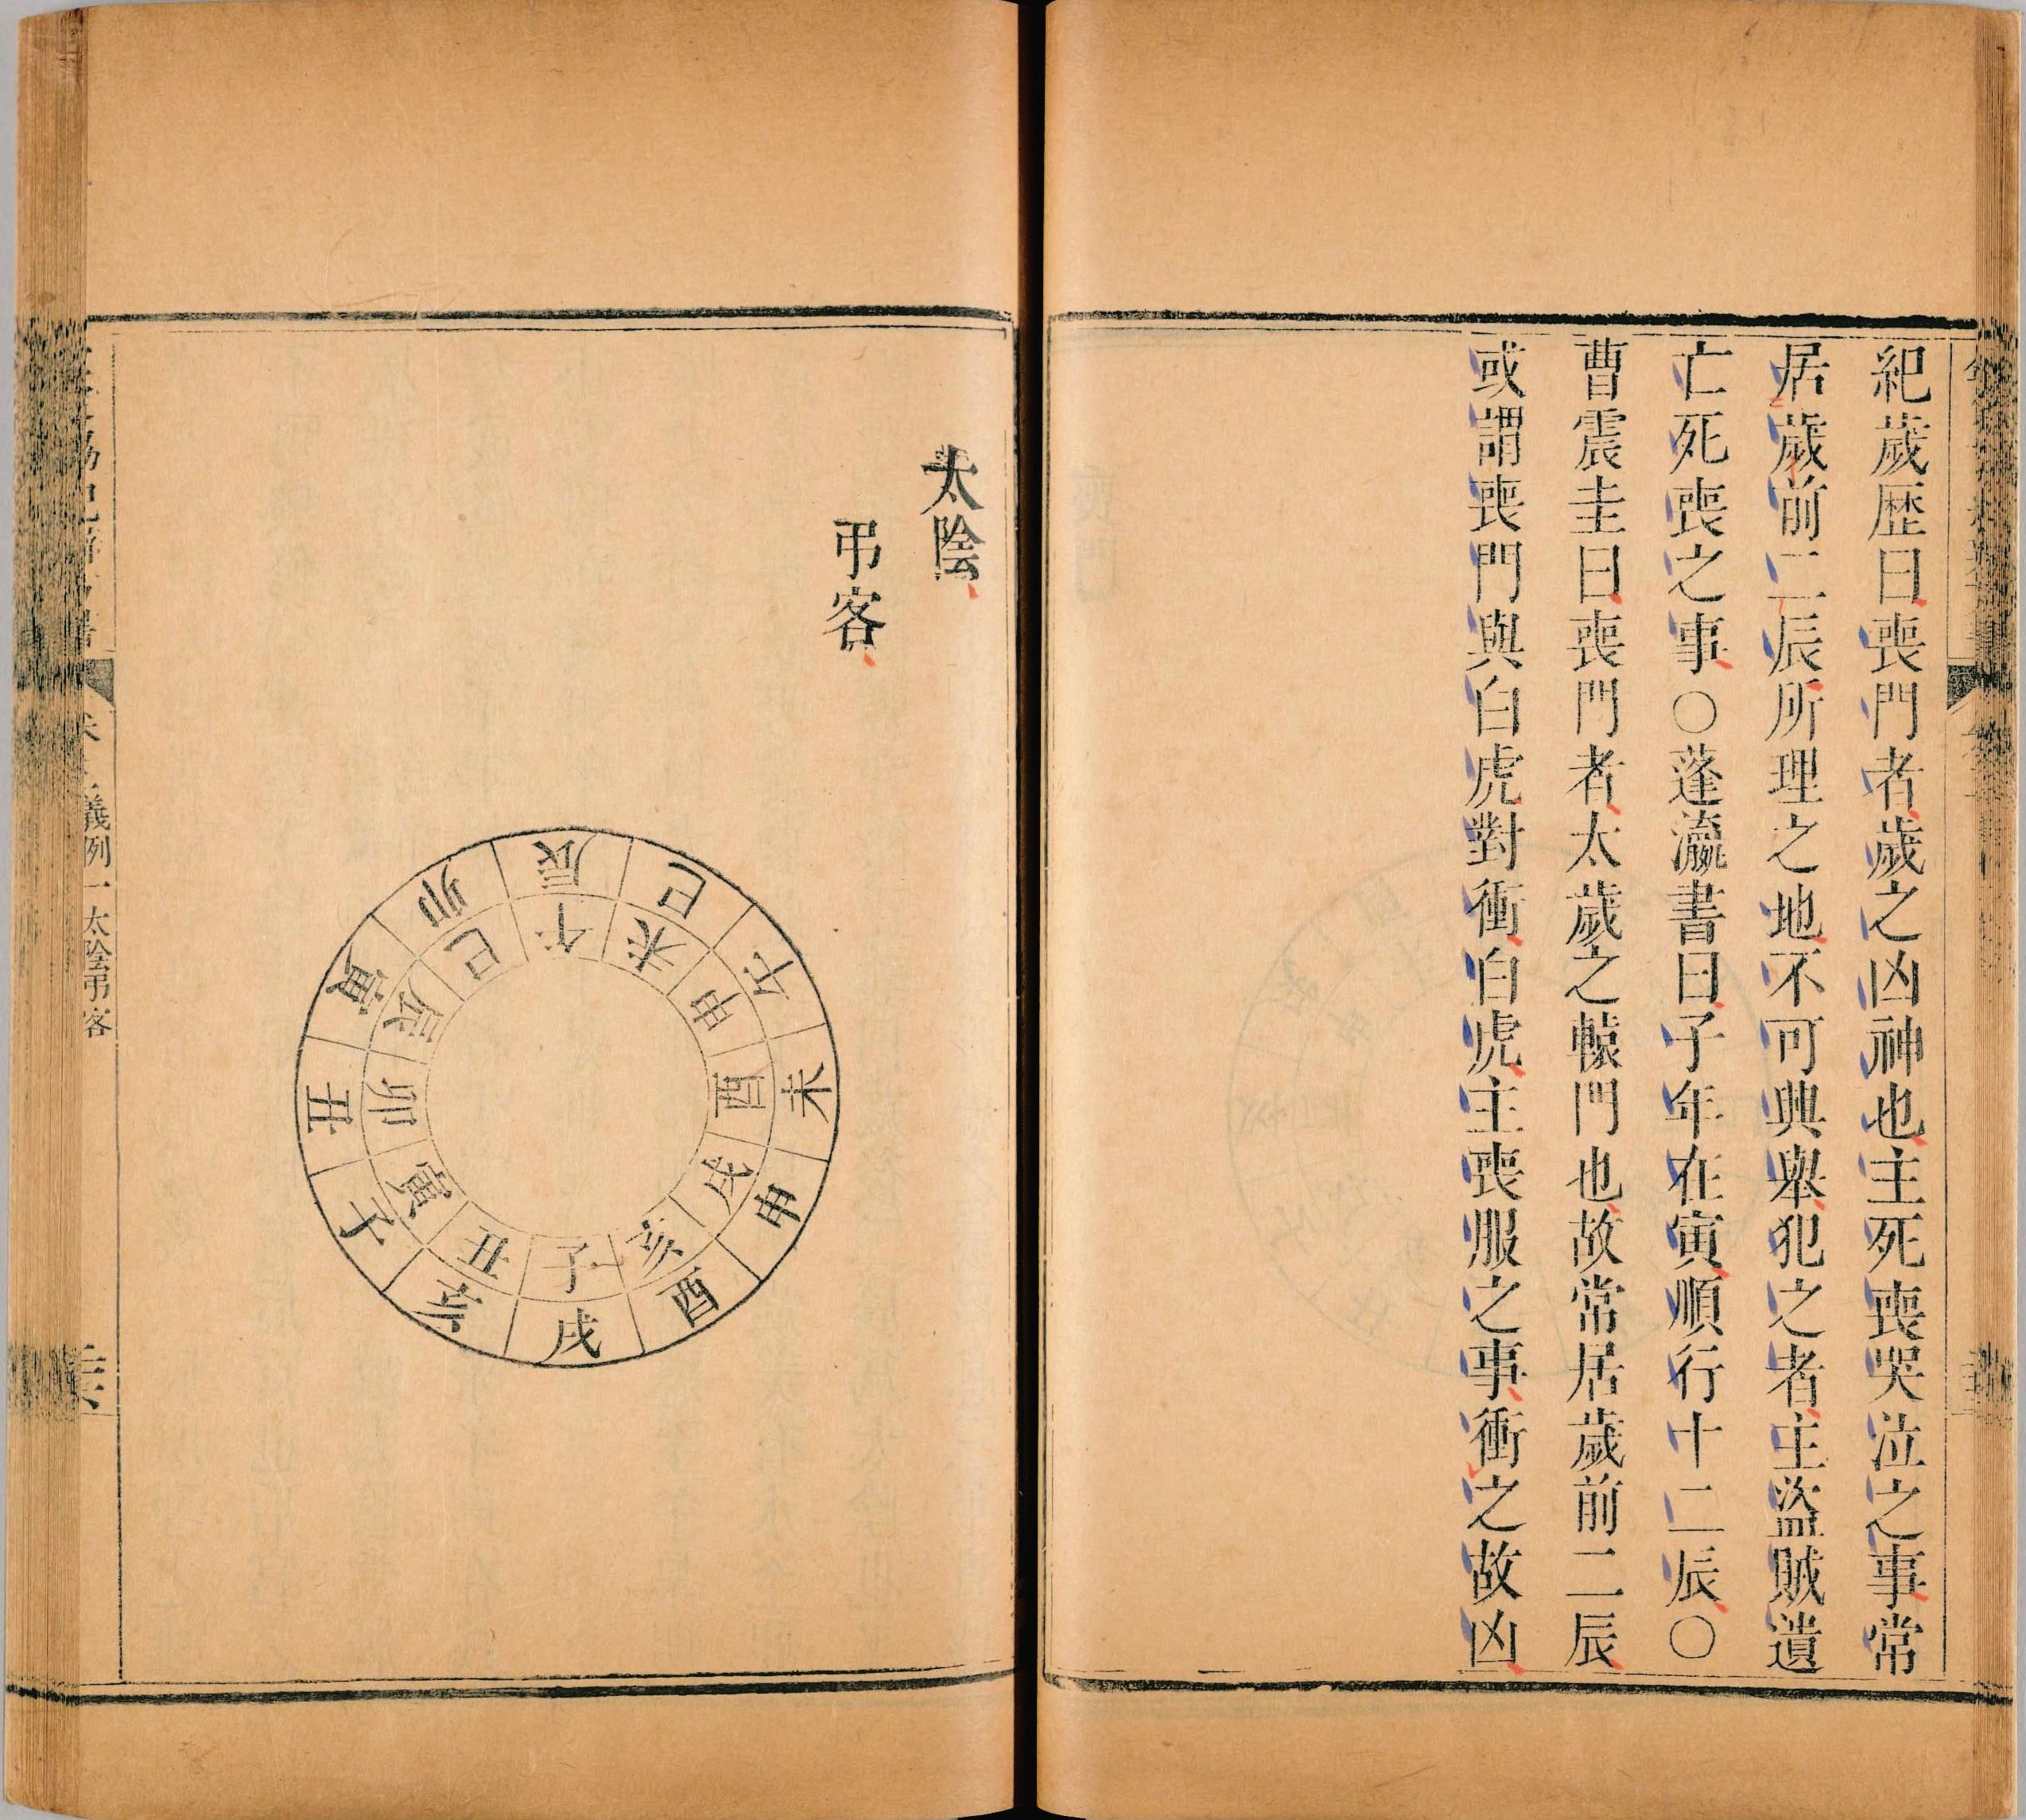 紀歲歴曰喪門者歲之凶神也主死喪哭泣之事常
居歲前二辰所理之地不可興舉犯之者主盜賊遺
亡死喪之事○蓬瀛書曰子年在寅順行十二辰○
曹震圭曰喪門者太歲之轅門也故常居歲前二辰
或謂喪門與白虎對衝白虎主喪服之事衝之故凶
太陰
弔客
辰巳午未申酉戌亥子丑寅卯
午未申酉戌亥子丑寅卯辰巳
義例一太陰弔客